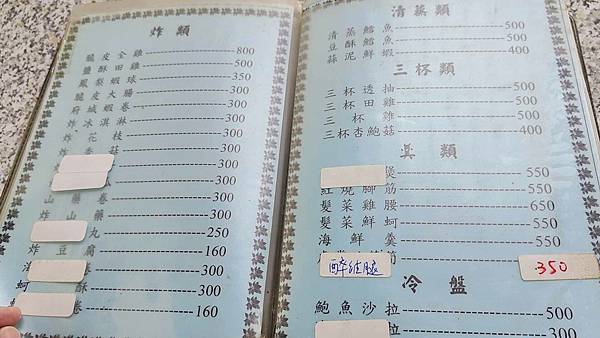 炸類
脆皮全雞 800
鹽酥田雞 500
鳳梨蝦球 350
脆皮大腸 300
府城蝦卷 300
炸冰淇淋 300
炸花枝 300
菇 300
300
卷 300
山藥 300
丸 250
炸豆腐 160
300
蚵酥 300
卷 160
清蒸類
清蒸鱈魚 500
豆酥鱈魚 500
蒜泥鮮蝦 400
三杯類
三杯透抽 500
三杯田雞 500
三杯雞 500
三杯杏鮑菇 400
羹類
煲 550
紅燒腳筋 550
髮菜雞腰 650
髮菜鮮蚵 550
海鮮羹 550
醉雞腿 350
冷盤
鮑魚沙拉 500
拉 400